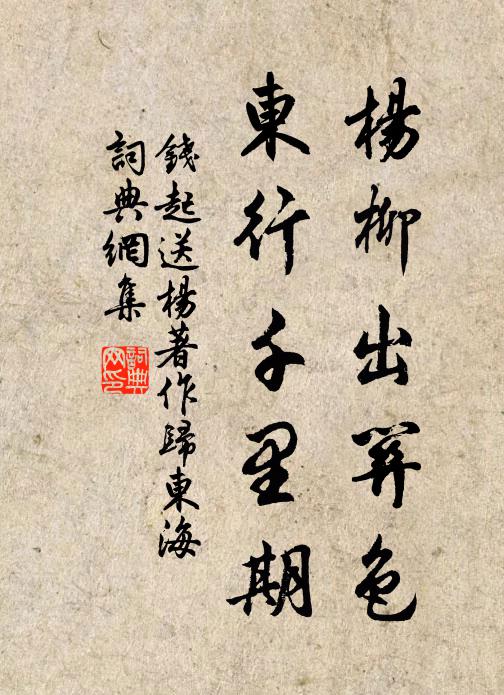 楊柳出關色
東行千里期
錢起送楊著作歸東海
詞典網集
詞典
网印